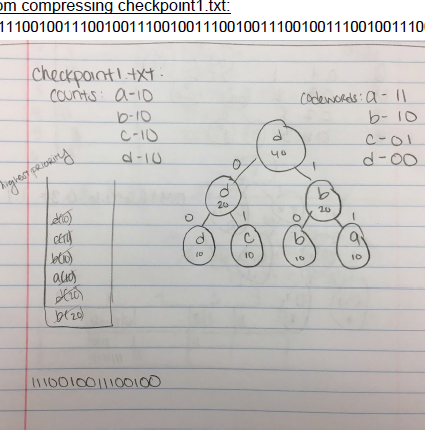 om compressing checkpoint1.txt:
11100100111001001110010011100100111001001110010011100
checkpoint1.txt:
counts: a-10
b-10
c-10
d-10
codewords: a-11
b-10
c-01
d-00
highest priority
d(10)
c(10)
b(10)
a(10)
d(20)
b(20)
d
40
0 1
d
20
b
20
0 1 0 1
d
10
c
10
b
10
a
10
1110010011100100